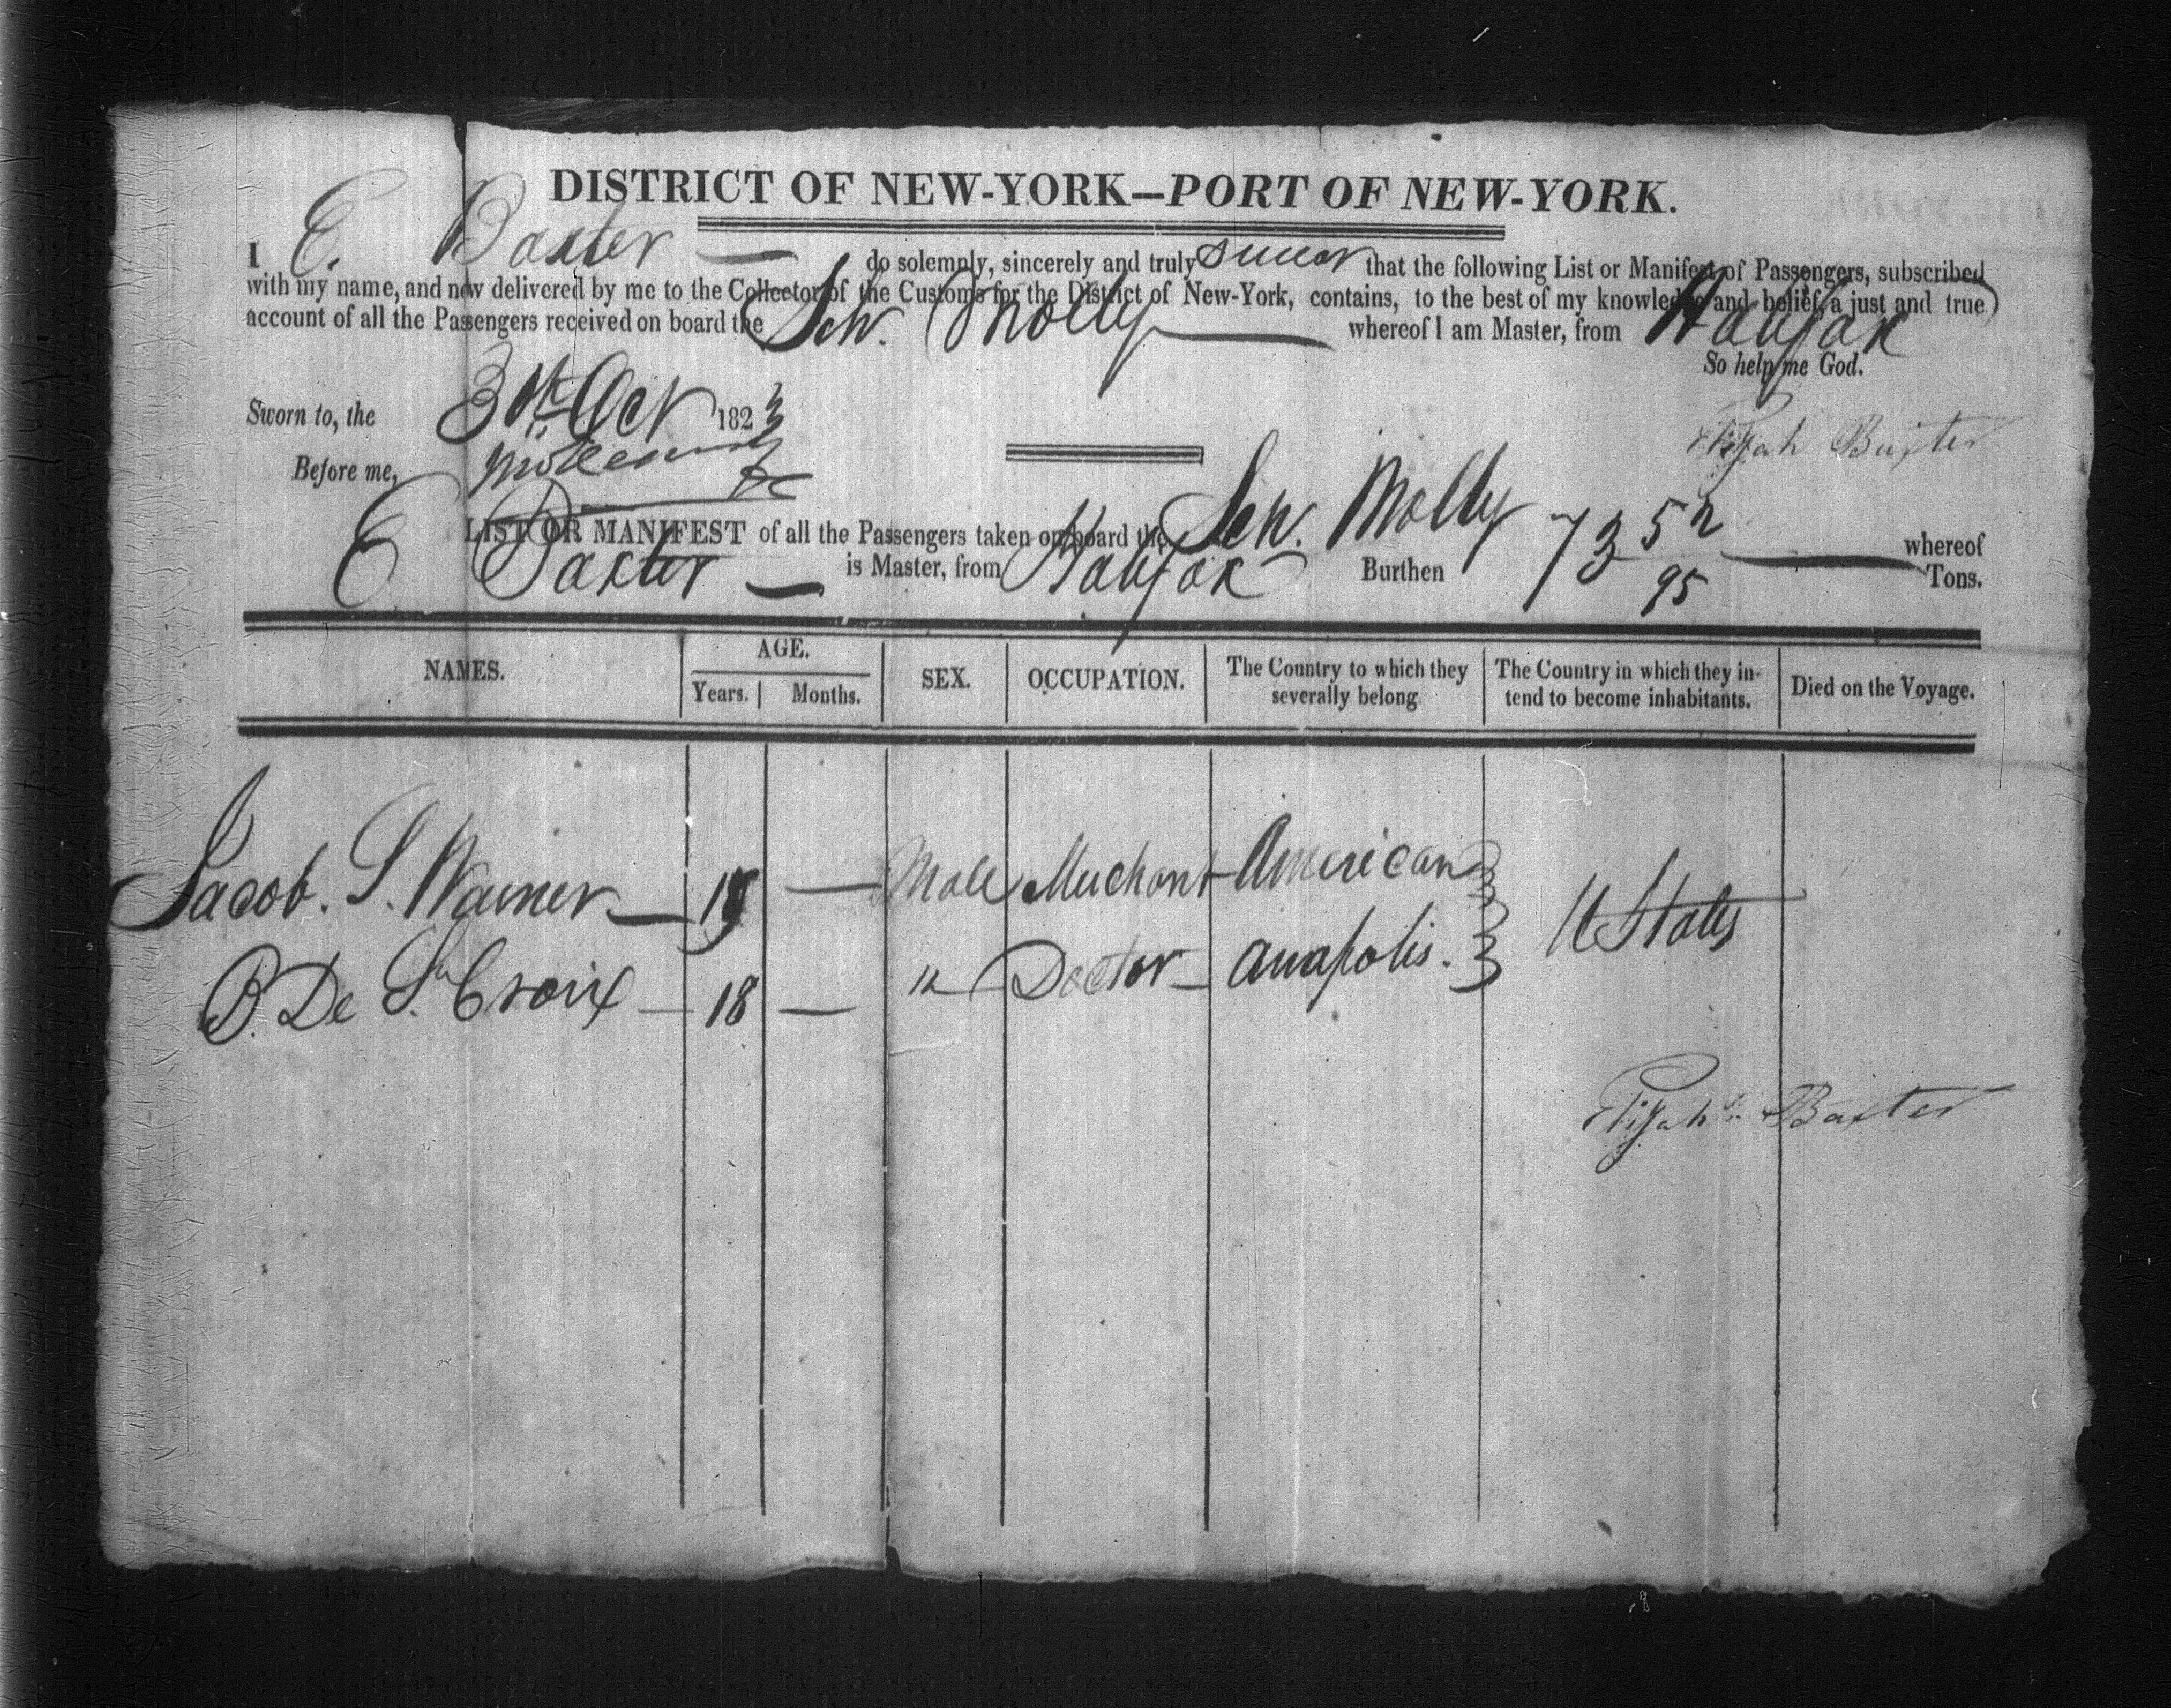 DISTRICT OF NEW-YORK—PORT OF NEW-YORK.
I E. Baxter — do solemnly, sincerely and truly swear that the following List or Manifest of Passengers, subscribed
with my name, and now delivered by me to the Collector of the Customs for the District of New-York, contains, to the best of my knowledge and belief, a just and true
account of all the Passengers received on board the Sch. Molly — whereof I am Master, from Halifax
So help me God.
Sworn to, the 31st Oct 1823
Elijah Baxter
Before me,
LIST OR MANIFEST of all the Passengers taken on board the Sch. Molly 73 52/95 — whereof
E Baxter — is Master, from Halifax Burthen Tons.
NAMES. AGE. Years. Months. SEX. OCCUPATION. The Country to which they severally belong. The Country in which they intend to become inhabitants. Died on the Voyage.
Jacob. S. Warner — 19 — Male Merchant American
U States
B. De St. Croix — 18 — " Doctor — Anapolis.
Elijah Baxter